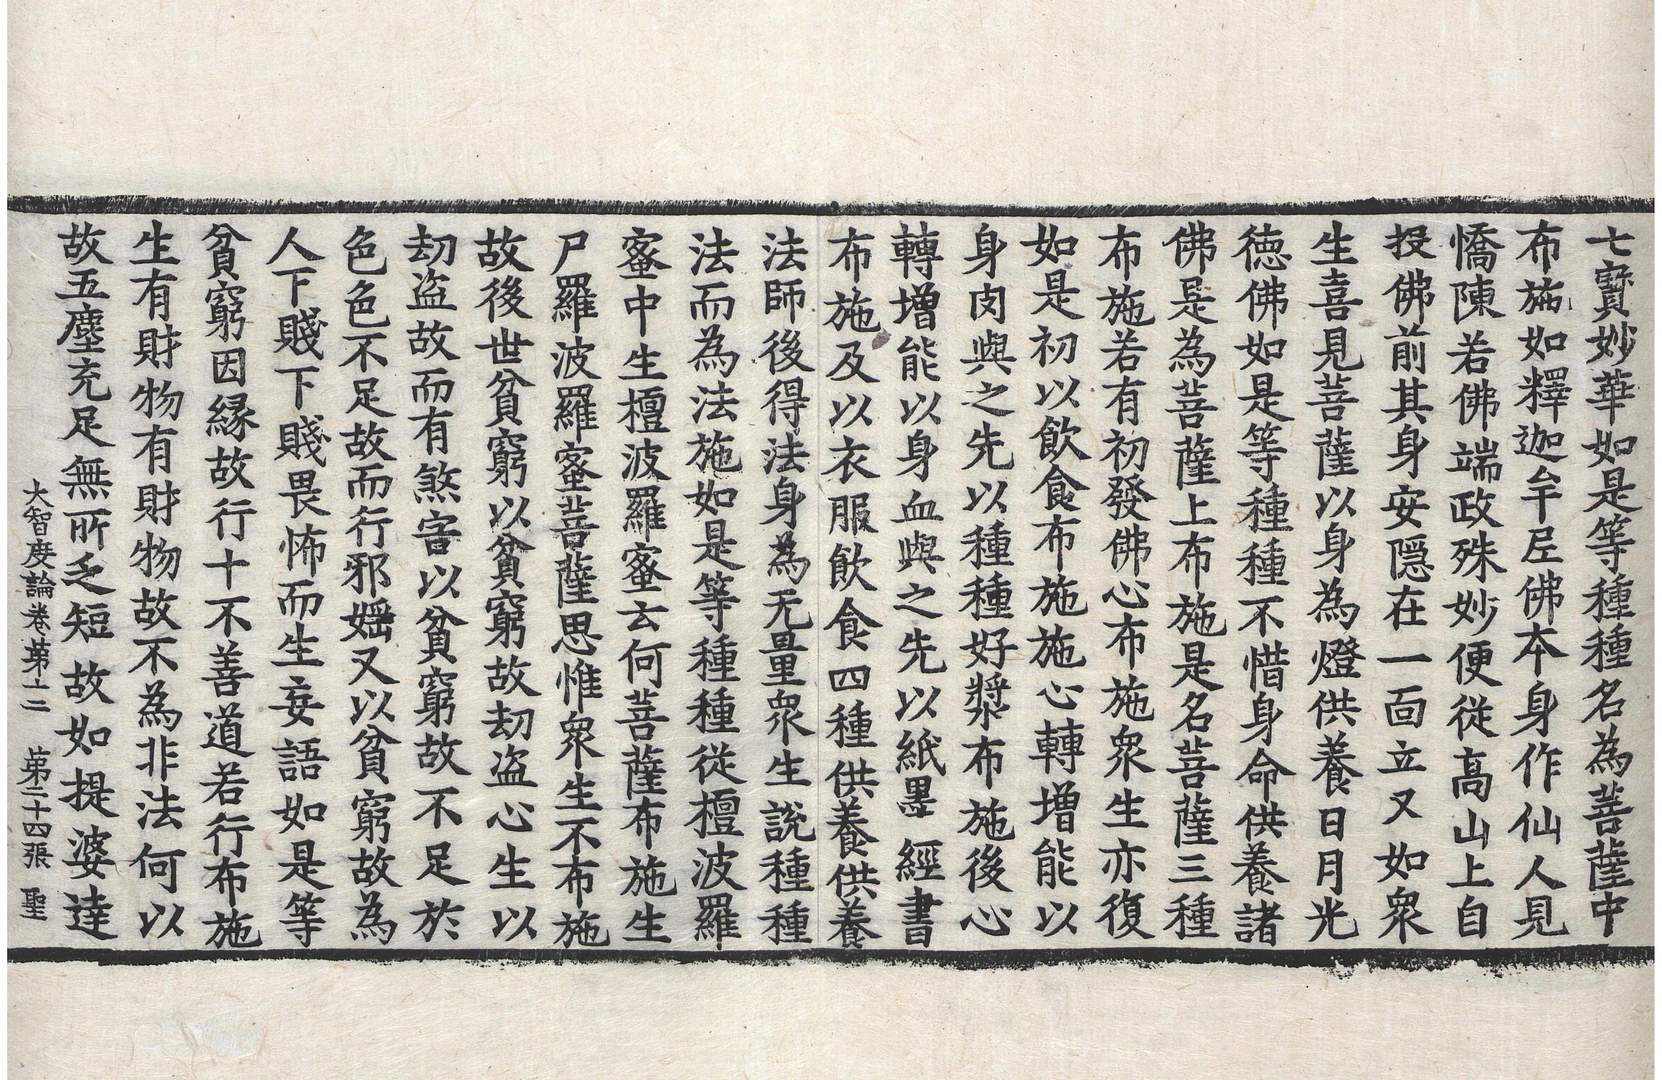 七寳妙華如是等種種名為菩薩中
布施如釋迦牟𡰱佛本身作仙人見
憍陳若佛端政殊妙便從高山上自
投佛前其身安隱在一面立又如衆
生喜見菩薩以身為燈供養日月光
德佛如是等種種不惜身命供養諸
佛是為菩薩上布施是名菩薩三種
布施若有初發佛心布施衆生亦復
如是初以飲食布施施心轉增能以
身肉與之先以種種好漿布施後心
轉增能以身血與之先以紙墨經書
布施及以衣服飲食四種供養供養
法師後得法身為无量衆生說種種
法而為法施如是等種種從檀波羅
蜜中生檀波羅蜜云何菩薩布施生
尸羅波羅蜜菩薩思惟衆生不布施
故後世貧窮以貧窮故刧盗心生以
刧盗故而有煞害以貧窮故不足於
色色不足故而行邪婬又以貧窮故為
人下賤下賤畏怖而生妄語如是等
貧窮因縁故行十不善道若行布施
生有財物有財物故不為非法何以
故五塵充足無所乏短故如提婆達
大智度論卷第十二 第二十四張 聖